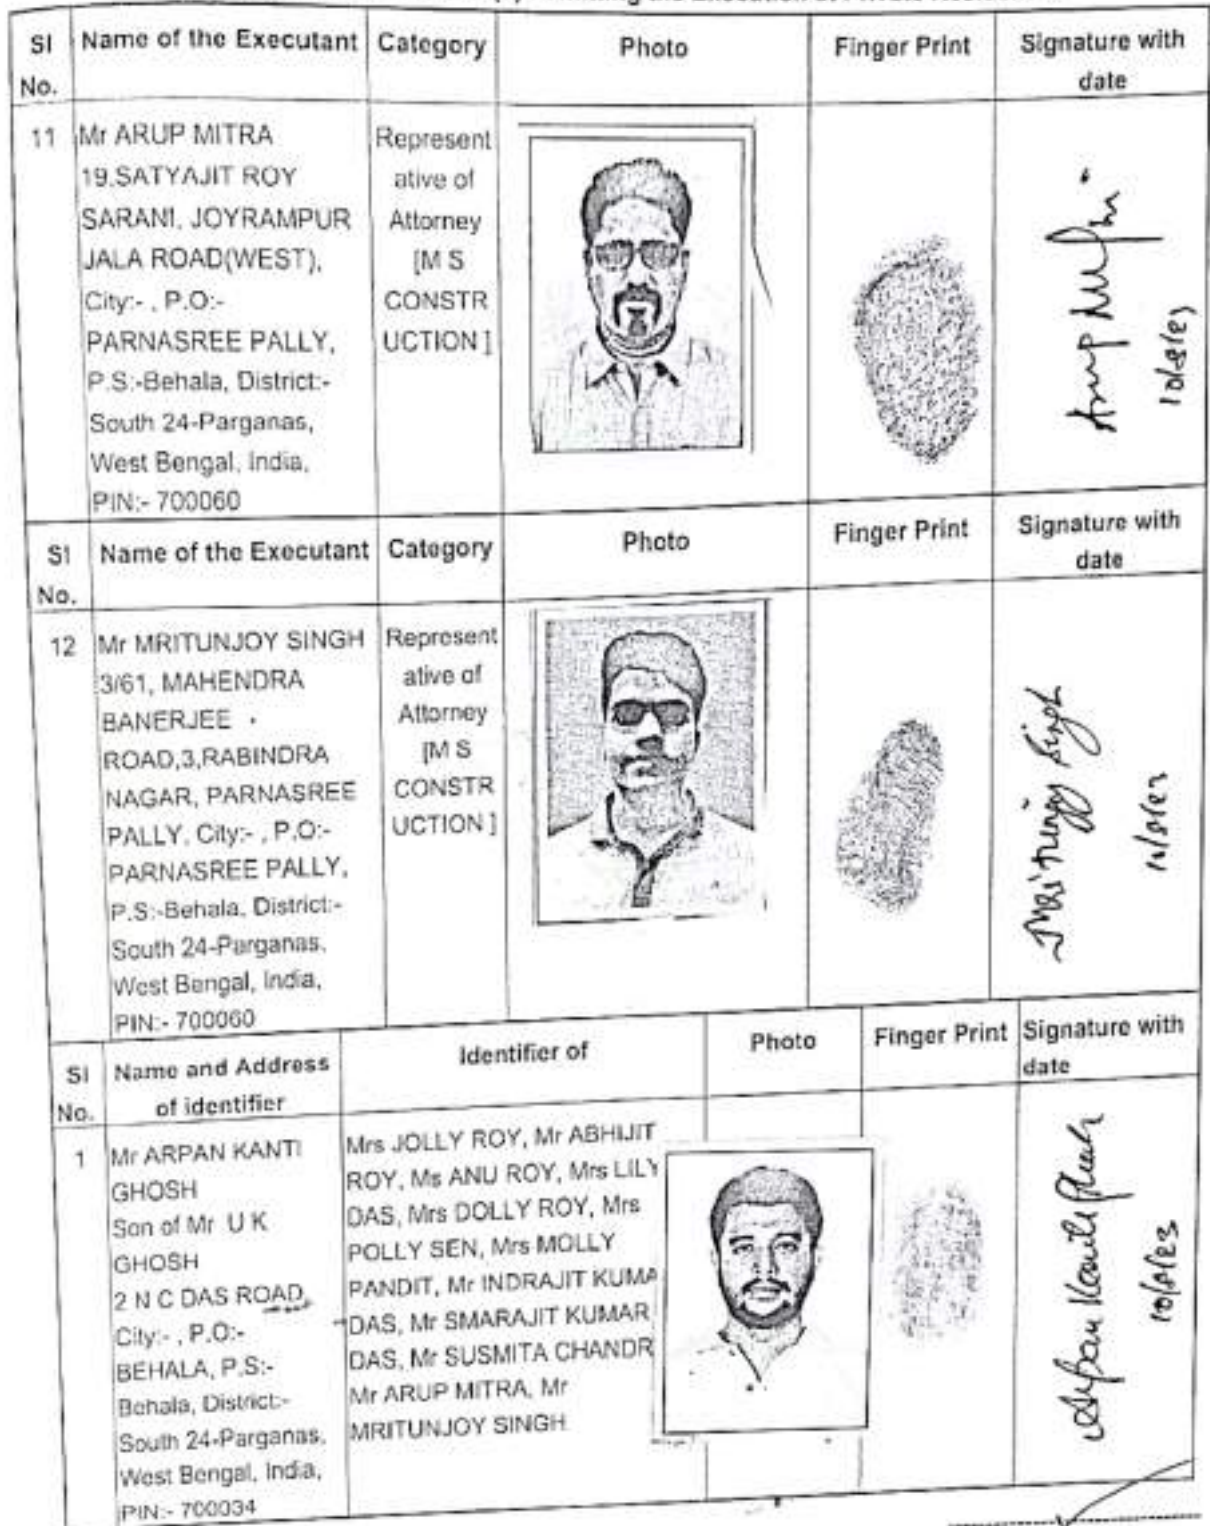 the Execution at Private Residence
Sl No. Name of the Executant Category Photo Finger Print Signature with date
11
Mr ARUP MITRA
19,SATYAJIT ROY
SARANI, JOYRAMPUR
JALA ROAD(WEST),
City:- , P.O:-
PARNASREE PALLY,
P.S:-Behala, District:-
South 24-Parganas,
West Bengal, India,
PIN:- 700060
Represent
ative of
Attorney
[M S
CONSTR
UCTION ]
Arup Mitra
10/8/23
Sl No. Name of the Executant Category Photo Finger Print Signature with date
12
Mr MRITUNJOY SINGH
3/61, MAHENDRA
BANERJEE
ROAD,3,RABINDRA
NAGAR, PARNASREE
PALLY, City:- , P.O:-
PARNASREE PALLY,
P.S:-Behala, District:-
South 24-Parganas,
West Bengal, India,
PIN:- 700060
Represent
ative of
Attorney
[M S
CONSTR
UCTION ]
Mritunjoy Singh
10/8/23
Sl No. Name and Address of identifier Identifier of Photo Finger Print Signature with date
1
Mr ARPAN KANTI
GHOSH
Son of Mr U K
GHOSH
2 N C DAS ROAD,
City:- , P.O:-
BEHALA, P.S:-
Behala, District:-
South 24-Parganas,
West Bengal, India,
PIN:- 700034
Mrs JOLLY ROY, Mr ABHIJIT
ROY, Ms ANU ROY, Mrs LILY
DAS, Mrs DOLLY ROY, Mrs
POLLY SEN, Mrs MOLLY
PANDIT, Mr INDRAJIT KUMA
DAS, Mr SMARAJIT KUMAR
DAS, Mr SUSMITA CHANDR
Mr ARUP MITRA, Mr
MRITUNJOY SINGH
Arpan Kanti Ghosh
10/8/23